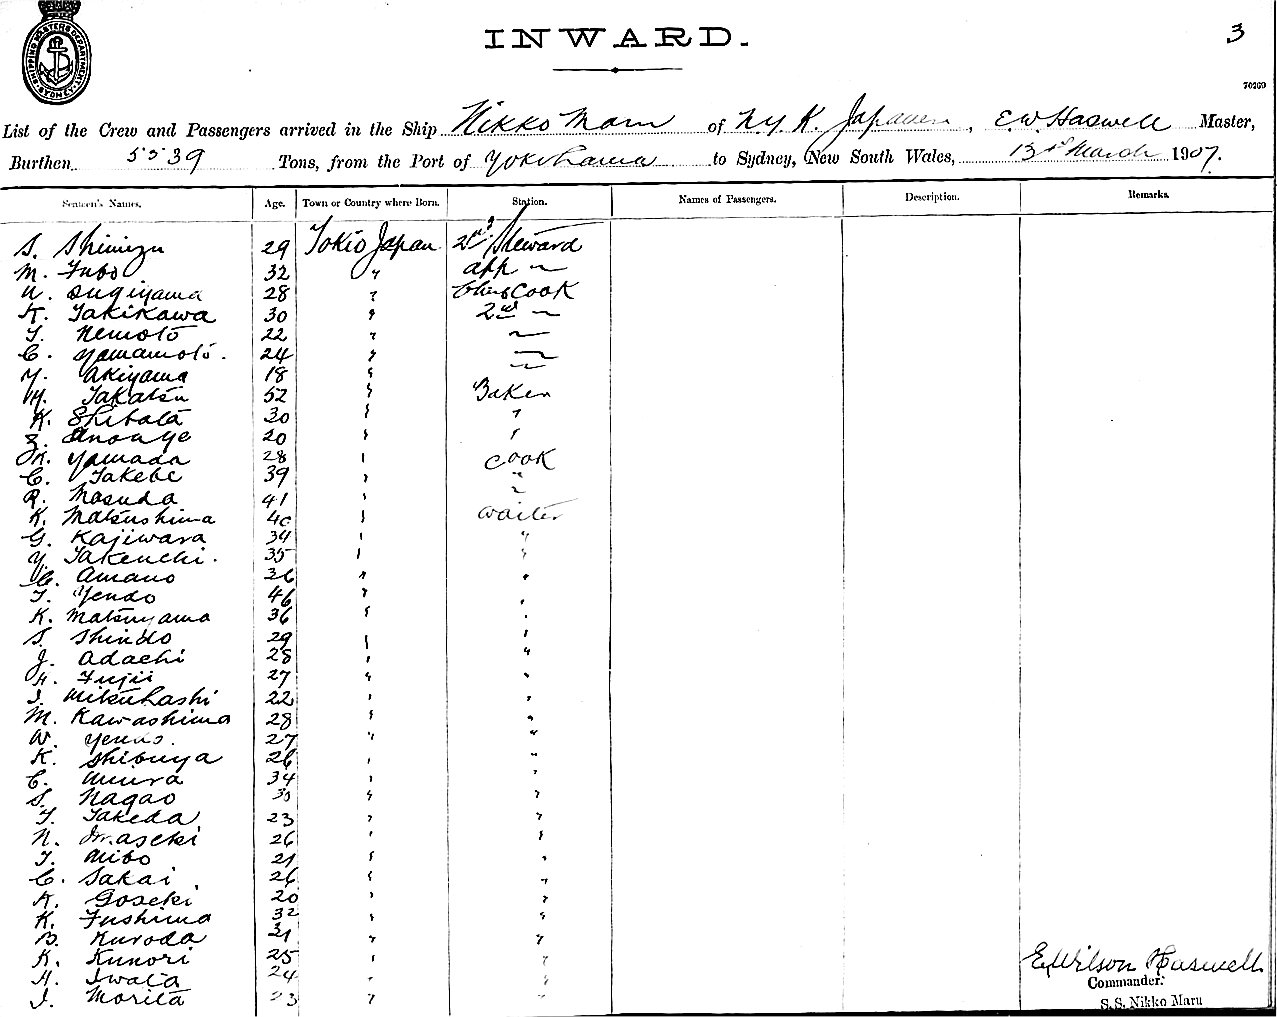 SHIPPING MASTERS DEPARTMENT. SYDNEY.
INWARD.
3
70269
List of the Crew and Passengers arrived in the Ship Nikko Maru of N.Y.K. Japanese, E.W. Haswell Master,
Burthen 5539 Tons, from the Port of Yokohama to Sydney, New South Wales, 13th March 1907.
Seamen's Names. Age. Town or Country where Born. Station. Names of Passengers. Description. Remarks.
S. Shimizu 29 Tokio Japan 2nd Steward
M. Fubo 32 " app ~
U. Sugiyama 28 " Chief Cook
K. Takikawa 30 " 2nd ~
T. Nemoto 22 " ~
C. Yamamoto. 24 " ~
Y. Akiyama 18 " ~
M. Takatsu 52 " Baker
K. Shibata 30 " "
Z. Anouye 20 " "
K. Yamada 28 " Cook
C. Takebe 39 " "
R. Masuda 41 " ~
K. Matsushima 40 " Waiter
G. Kajiwara 34 " "
Y. Takenchi. 35 " "
C. Amano 36 " "
T. Yendo 46 " "
K. Matsuyama 36 " "
S. Shindo 29 " "
J. Adachi 28 " "
H. Fujii 27 " "
I. Mitsuhashi 22 " "
M. Kawashima 28 " "
W. 27 " "
K. Shibuya 26 " "
C. Miura 34 " "
S. Nagao " "
T. Takeda 23 " "
N. Imaseki 26 " "
T. 21 " "
C. Sakai. 26 " "
K. Goseki 20 " "
K. Fushima 32 " "
B. Kuroda 31 " "
K. Kunori 25 " "
H. Iwata 24 " "
I. Morita 23 " "
E. Wilson Haswell
Commander.
S.S. Nikko Maru